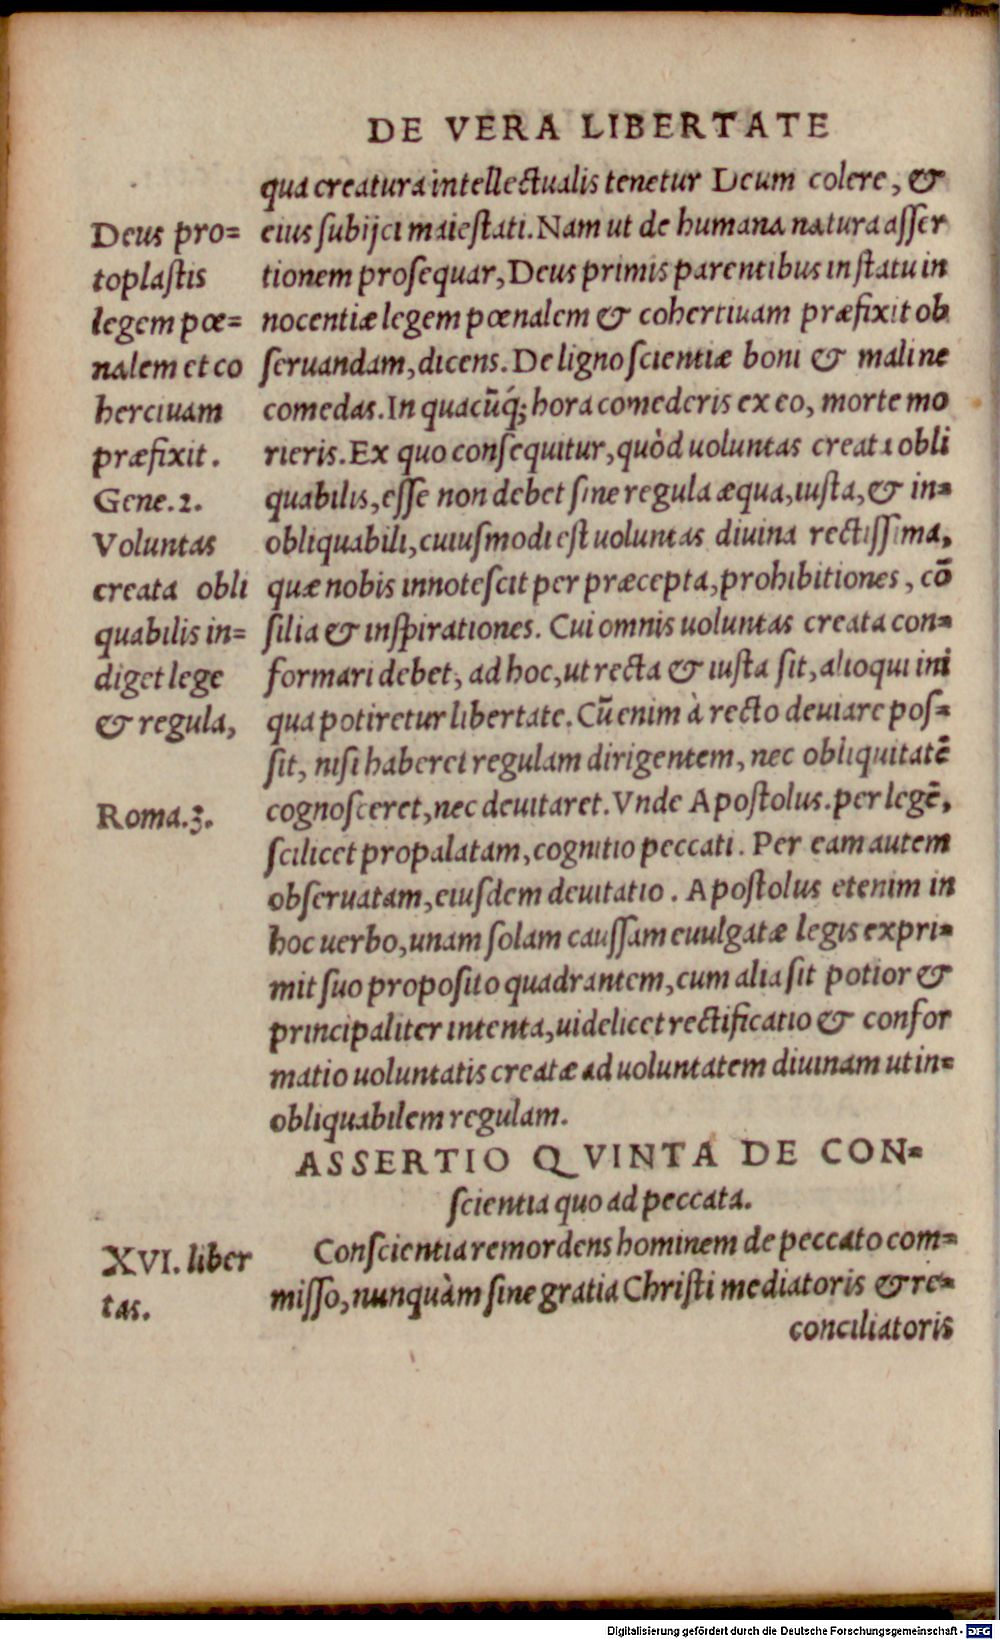 DE VERA LIBERTATE
qua creatura intellectualis tenetur Deum colere, &
eius ſubijci maieſtati. Nam ut de humana natura aſſer
tionem proſequar, Deus primis parentibus in ſtatu in
nocentiæ legem pœnalem & cohertiuam præfixit ob
ſeruandam, dicens. De ligno ſcientiæ boni & mali ne
comedas. In quacūq́; hora comederis ex eo, morte mo
rieris. Ex quo conſequitur, quòd uoluntas creata obli
quabilis, eſſe non debet ſine regula æqua, iuſta, & in=
obliquabili, cuiuſmodi eſt uoluntas diuina rectiſſima,
quæ nobis innoteſcit per præcepta, prohibitiones, cō
ſilia & inſpirationes. Cui omnis uoluntas creata con=
formari debet, ad hoc, ut recta & iuſta ſit, alioqui ini
qua potiretur libertate. Cū enim à recto deuiare poſ=
ſit, niſi haberet regulam dirigentem, nec obliquitatē
cognoſceret, nec deuitaret. Vnde Apoſtolus. per legē,
ſcilicet propalatam, cognitio peccati. Per eam autem
obſeruatam, eiuſdem deuitatio. Apoſtolus etenim in
hoc uerbo, unam ſolam cauſſam euulgatæ legis expri=
mit ſuo propoſito quadrantem, cum alia ſit potior &
principaliter intenta, uidelicet rectificatio & confor
matio uoluntatis creatæ ad uoluntatem diuinam ut in=
obliquabilem regulam.
ASSERTIO QVINTA DE CON=
ſcientia quo ad peccata.
Conſcientia remordens hominem de peccato com=
miſſo, nunquàm ſine gratia Chriſti mediatoris & re=
conciliatoris
Deus pro=
toplaſtis
legem pœ=
nalem et co
herciuam
præfixit.
Gene.2.
Voluntas
creata obli
quabilis in=
diget lege
& regula,
Roma.3.
XVI. liber
tas.
Digitalisierung gefördert durch die Deutsche Forschungsgemeinschaft - DFG